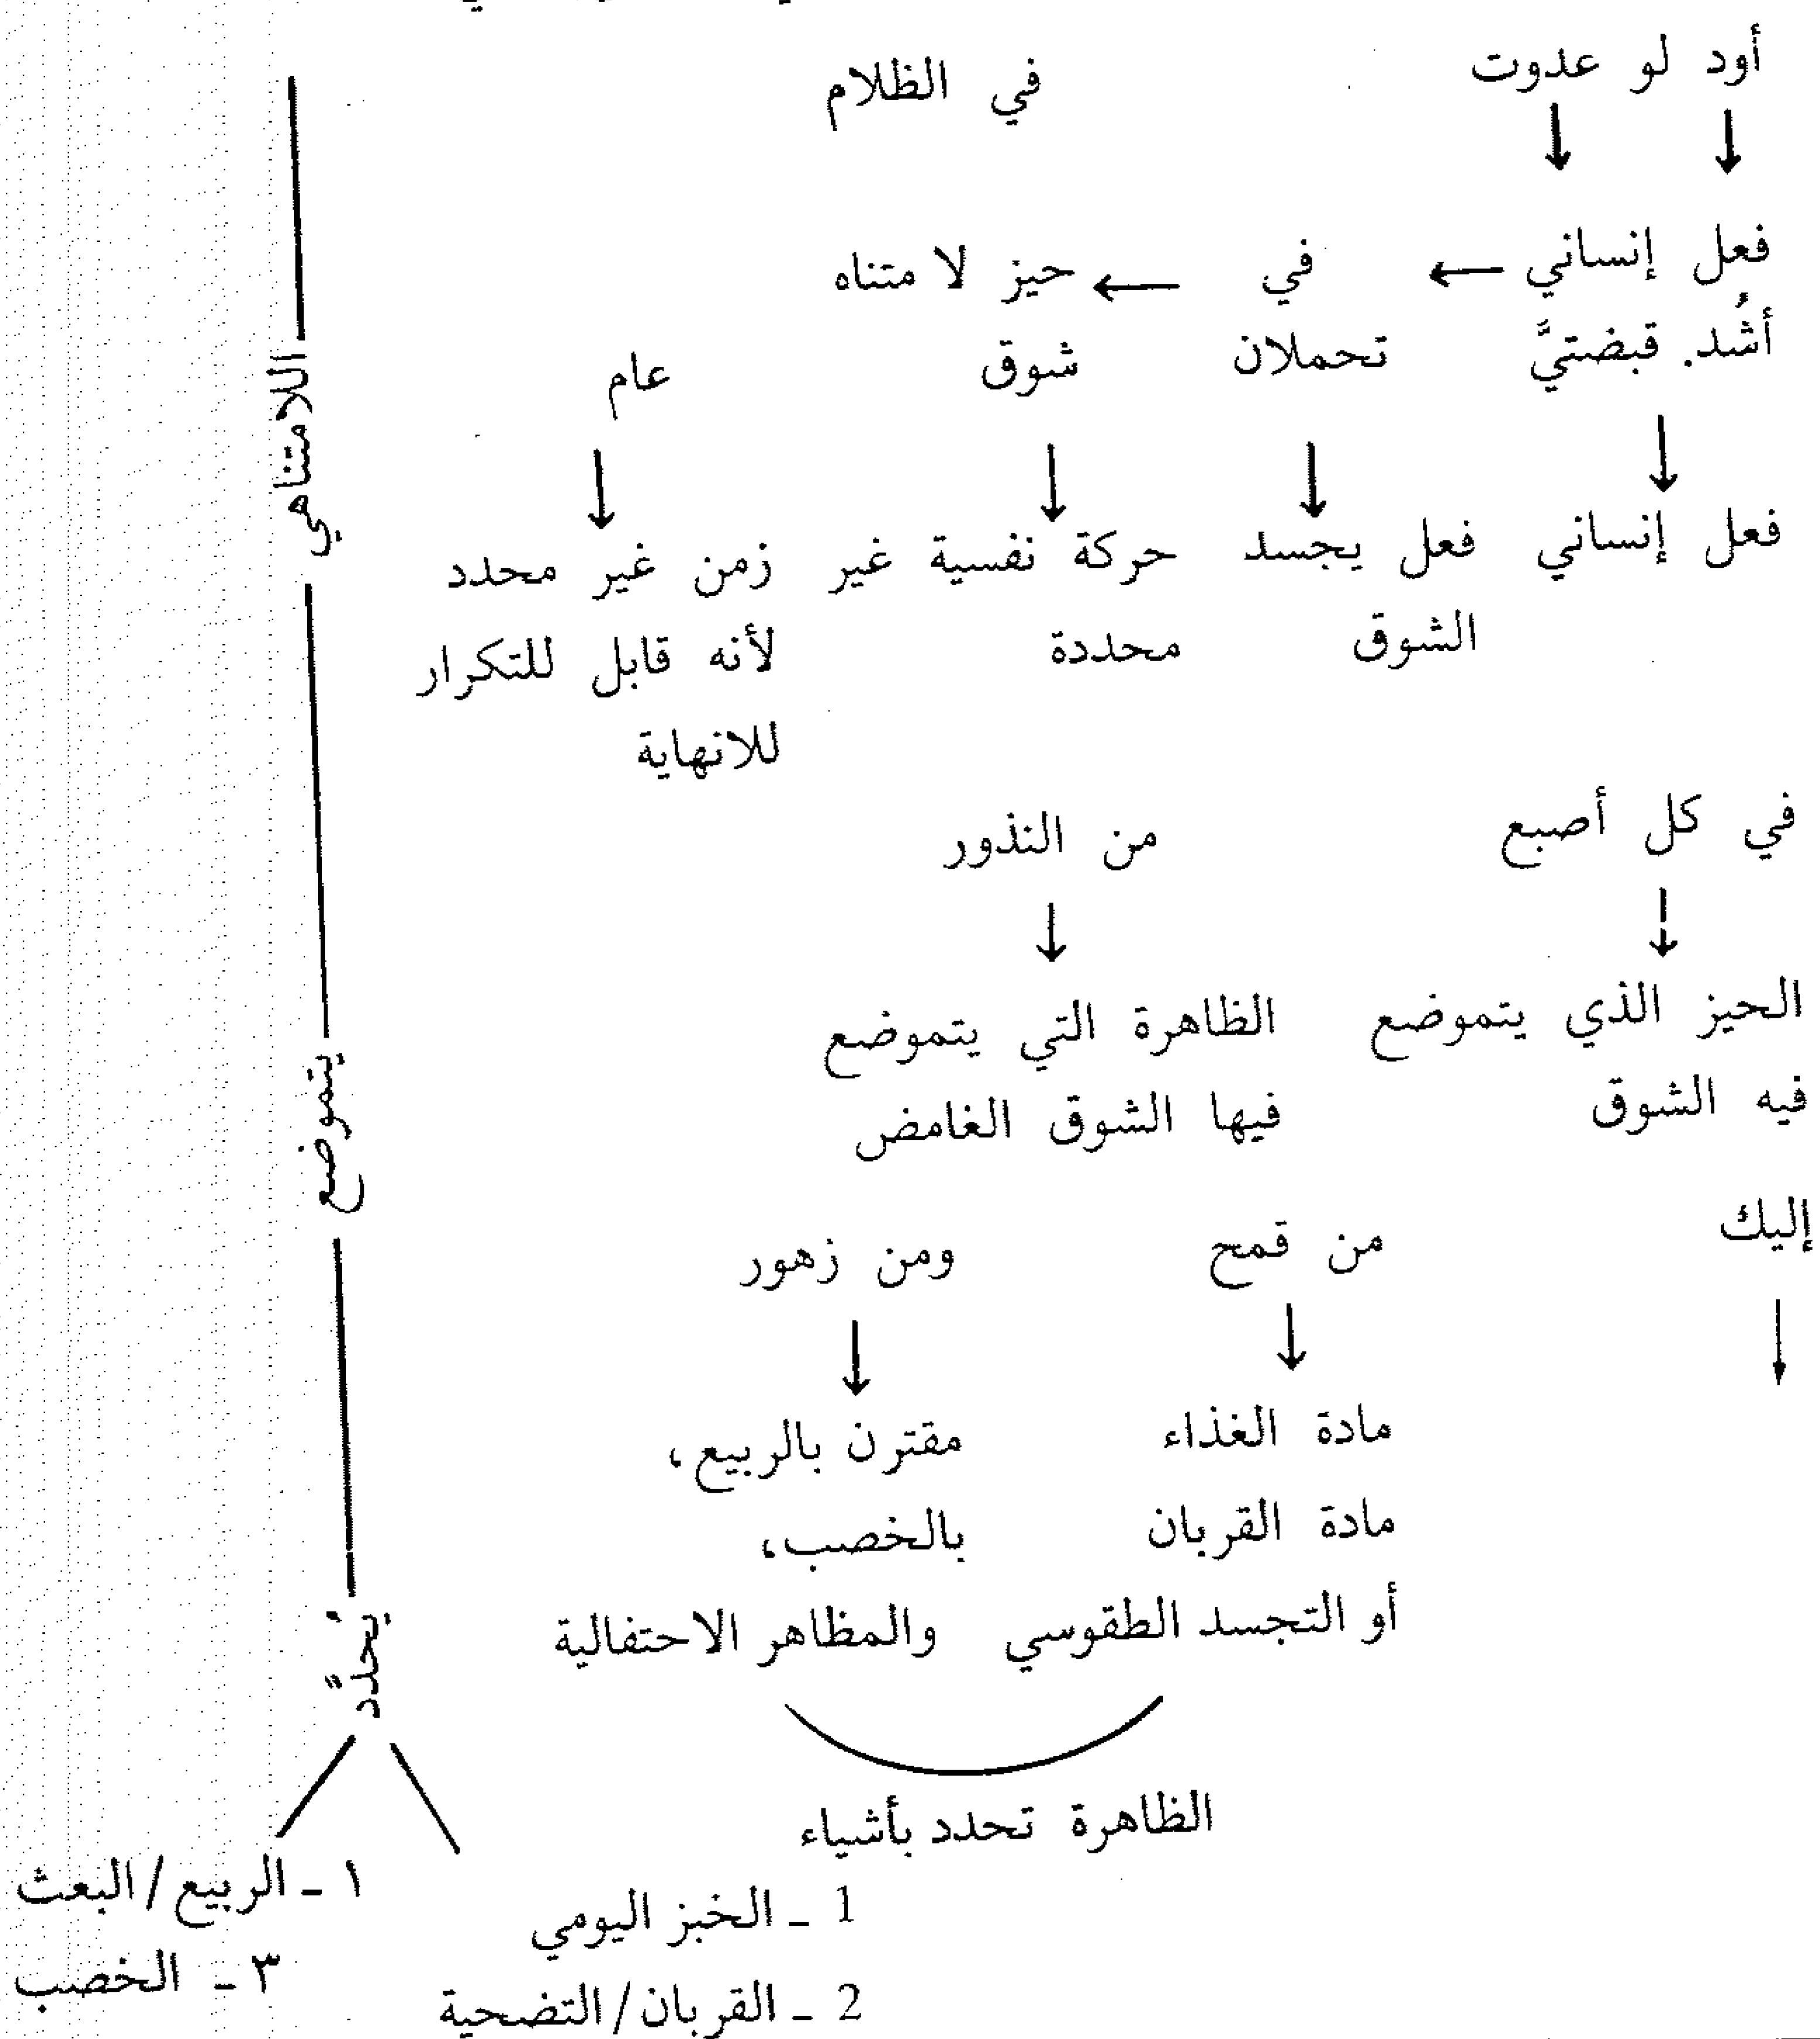 أود لو عدوت في الظلام
فعل إنساني ← في ← حيز لا متناه
أشُد. قبضتيَّ تحملان شوق عام
فعل إنساني فعل يجسد حركة نفسية غير زمن غير محدد
الشوق محددة لأنه قابل للتكرار
للانهاية
في كل أصبع من النذور
الحيز الذي يتموضع الظاهرة التي يتموضع
فيه الشوق فيها الشوق الغامض
إليك من قمح ومن زهور
مادة الغذاء مقترن بالربيع،
مادة القربان بالخصب،
أو التجسد الطقوسي والمظاهر الاحتفالية
الظاهرة تحدد بأشياء
1 ـ الخبز اليومي
2 ـ القربان/التضحية
اللامتناهي
يتموضع
يُحدَّد
١ ـ الربيع/البعث
٣ ـ الخصب